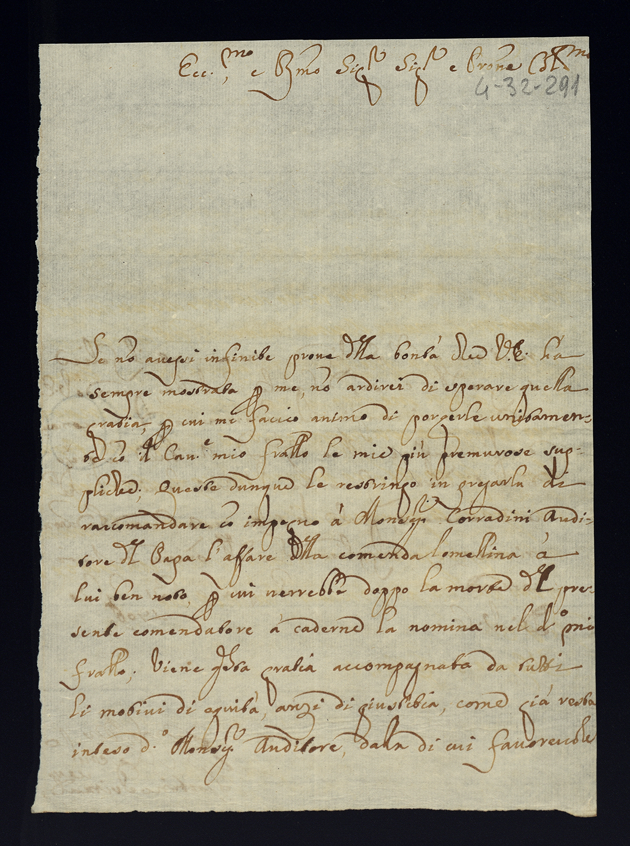 Ecc.mo e Rmo Sigr Sigr e Prone
4-32-291
Se nò avessi infinite prove dlla bontà che V.E. hà
sempre mostrata p me, nò ardirei di sperare quella
gratia, p cui mi faccio animo di porgerle unitamen-
te cò il Cav.e mio fratllo le mie più premurose sup-
pliche. Queste dunque le restringo in pregarla di
raccomandare cò impegno à Monsigr Corradini Audi-
tore dl Papa l'affare dlla comenda lomellina à
lui ben noto, p cui verrebbe doppo la morte dl pre-
sente comendatore à caderne la nomina nel do mio
fratllo; viene qsta gratia accompagnata da tutti
li motivi di equità, anzi di giustitia, come già resta
inteso d.o Monsigr Auditore, dalla di cui favorevole